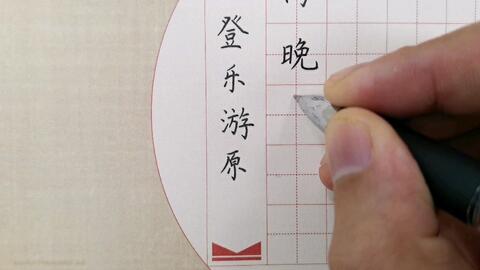 登乐游原
晚